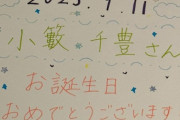 2023.9.11
小籔 千豊さん
お誕生日
おめでとうございます